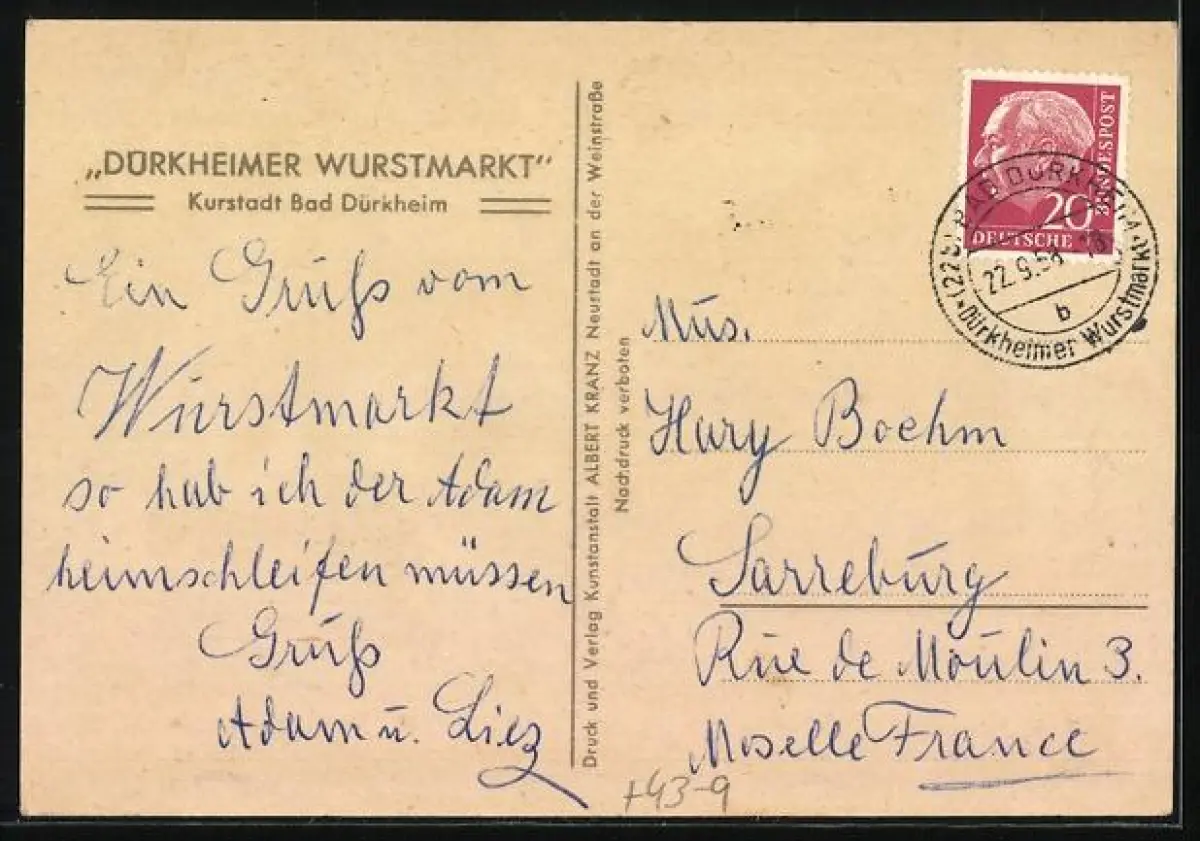 „DÜRKHEIMER WURSTMARKT"
Kurstadt Bad Dürkheim
Ein Gruß vom
Wurstmarkt
so hab ich der Adam
heimschleifen müssen
Gruß
Adam u. Liez
Druck und Verlag Kunstanstalt ALBERT KRANZ Neustadt an der Weinstraße
Nachdruck verboten
DEUTSCHE
BUNDESPOST
20
(22b) BAD DÜRKHEIM
22.9.58
b
Dürkheimer Wurstmarkt
Mus.
Hary Boehm
Sarreburg
Rue de Moulin 3.
Moselle France
+43-9